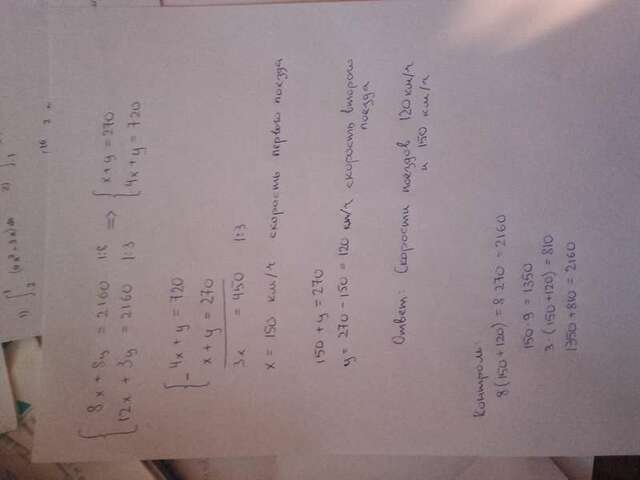 { 8x + 8y = 2160 1:8
12x + 3y = 2160 1:3
=> { x+y = 270
4x + y = 720
{ - 4x + y = 720
x + y = 270
3x = 450 1:3
x = 150 км/ч скорость первого поезда
150 + y = 270
y = 270 - 150 = 120 км/ч скорость второго
поезда
Ответ: Скорости поездов 120 км/ч
и 150 км/ч
Контроль:
8(150+120) = 8 270 = 2160
150·9 = 1350
3·(150+120) = 810
1350 + 810 = 2160